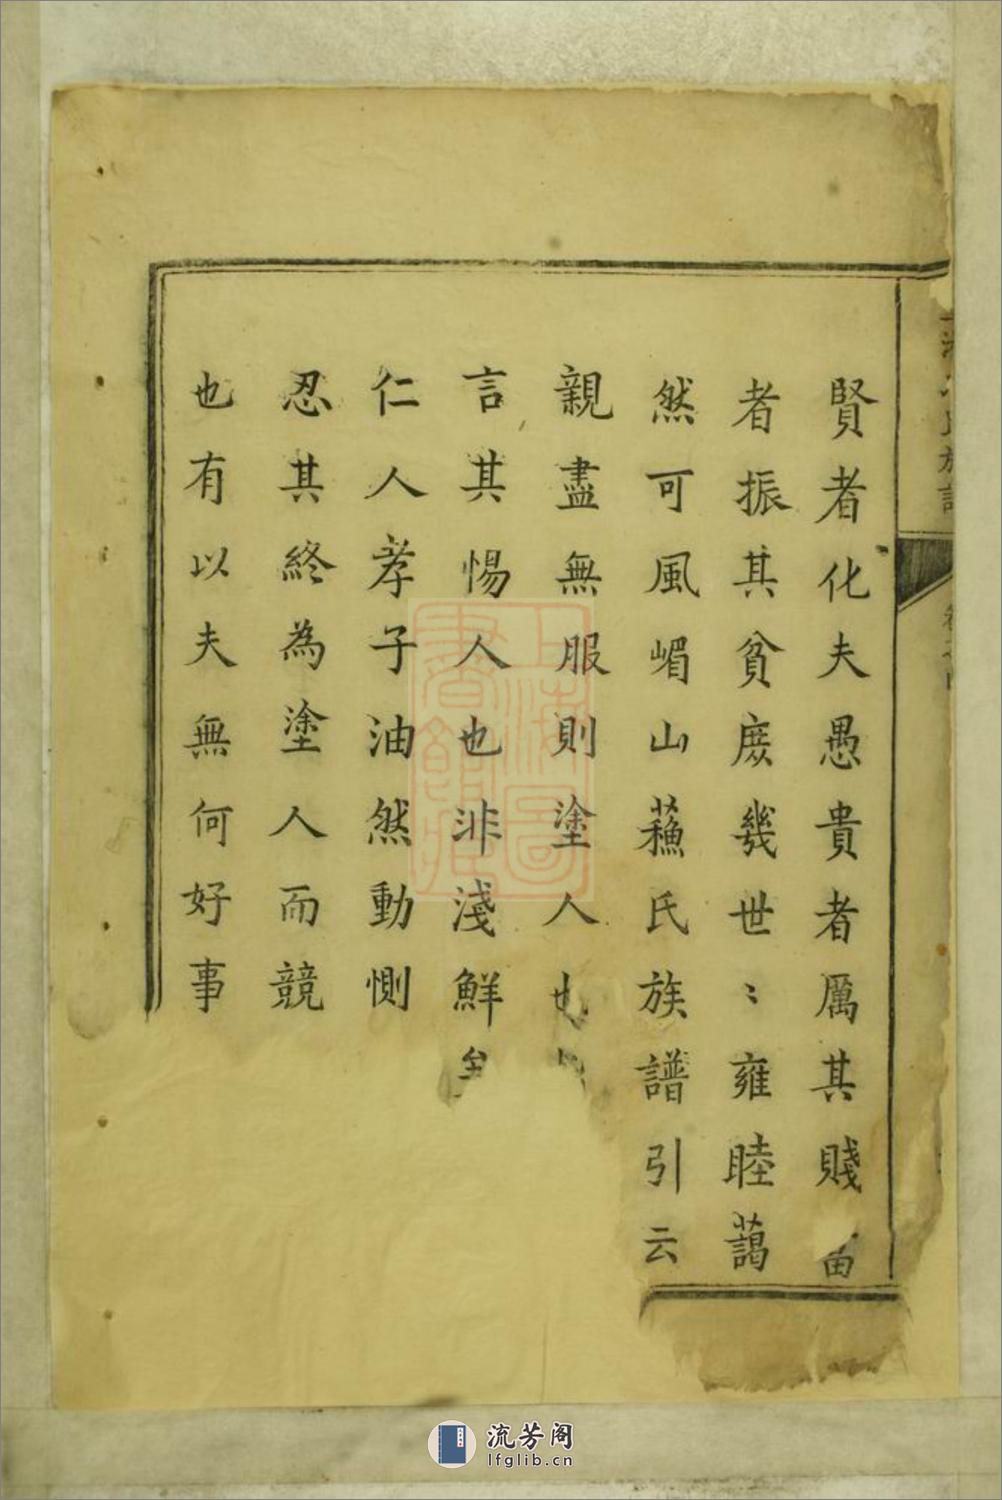 賢者化夫愚貴者厲其賤富
者振其貧庻幾世〻雍睦藹
然可風嵋山蘓氏族譜引云
親盡無服則塗人也
言其惕人也非淺鮮
仁人孝子油然動惻
忍其終為塗人而競
也有以夫無何好事
氏族譜
卷之
上海圖書館藏
流芳阁
lfglib.cn